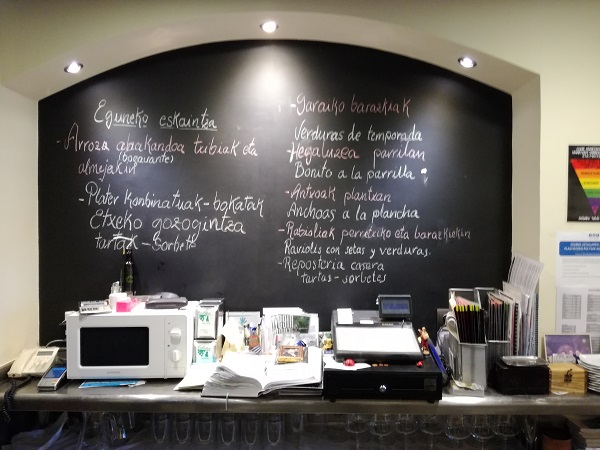 Eguneko eskaintza
- Arroza abakandoa txibiak eta
(bogavante)
almejakin
- Plater konbinatuak - bokatak
Etxeko gozogintza
tartak - sorbete
- Garaiko barazkiak
Verduras de temporada
- Hegaluzea parrilan
Bonito a la parrilla
- Antxoak plantxan
Anchoas a la plancha
- Rabioliak perretxiko eta barazkiekin
Raviolis con setas y verduras.
- Reposteria casera
tartas - sorbetes